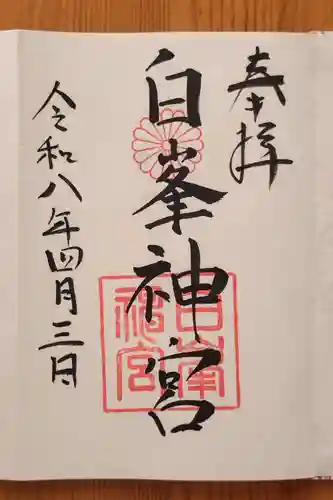 奉拝
白峯神宮
白峯神宮
令和八年四月三日